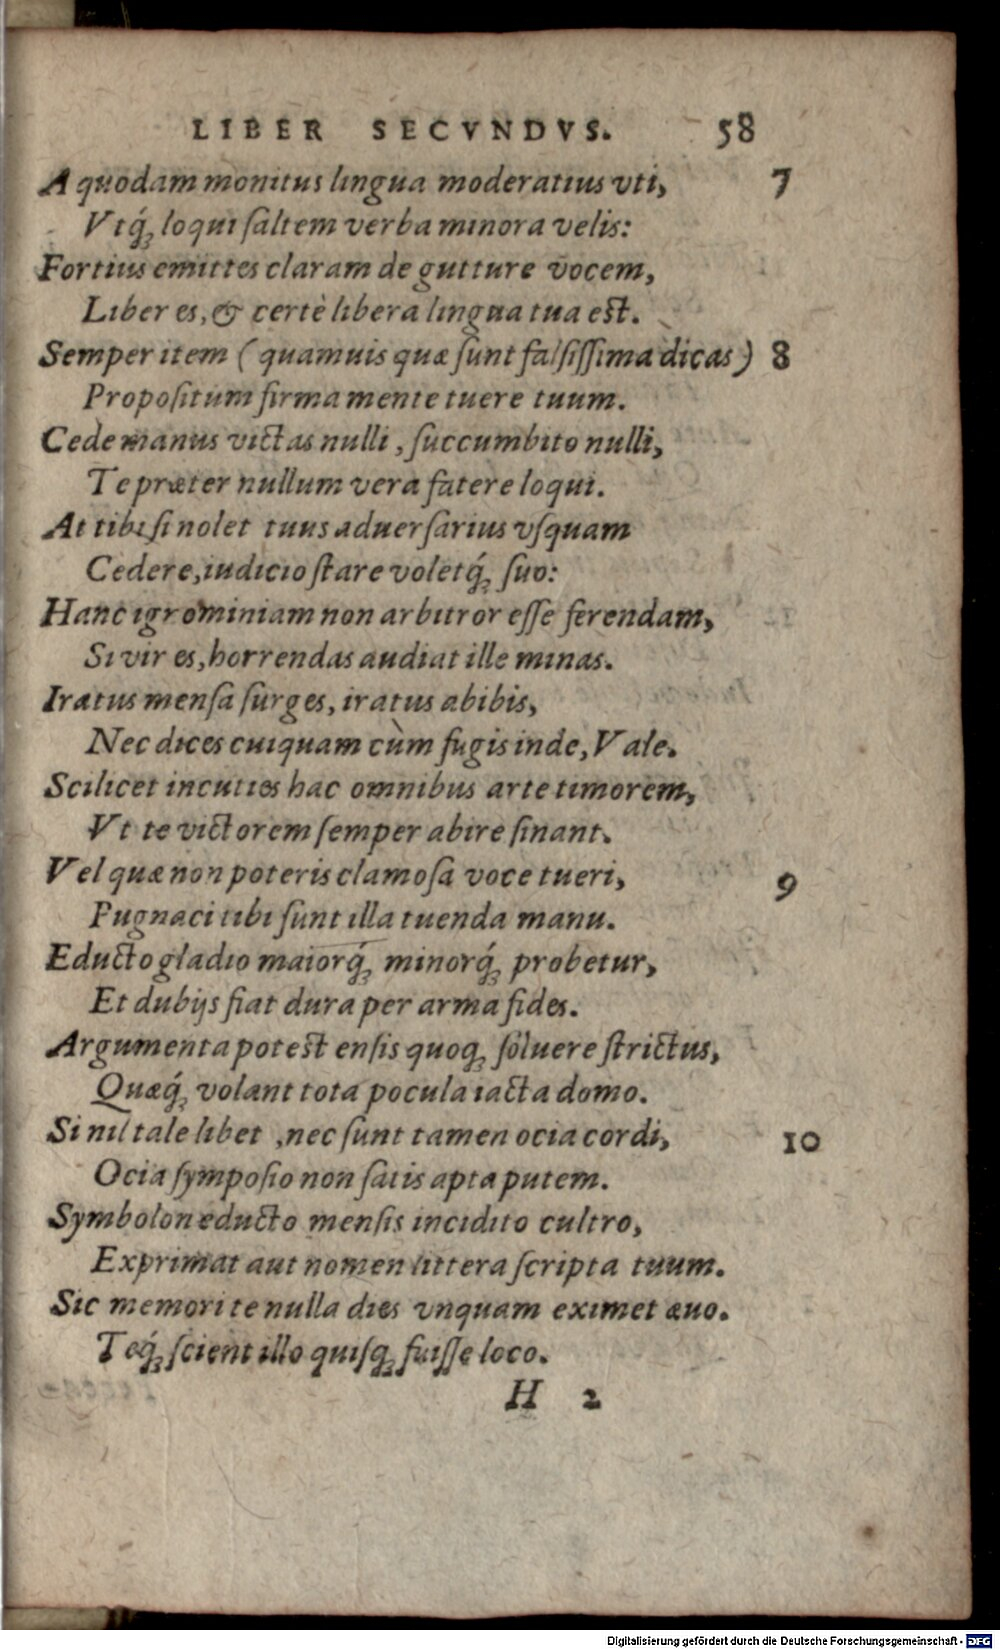 LIBER SECVNDVS. 58
A quodam monitus lingua moderatius vti, 7
Vtq́; loqui ſaltem verba minora velis:
Fortius emittes claram de gutture vocem,
Liber es, & certè libera lingua tua est.
Semper item (quamuis quæ ſunt falſiſſima dicas) 8
Propoſitum firma mente tuere tuum.
Cede manus victas nulli, ſuccumbito nulli,
Te præter nullum vera fatere loqui.
At tibi ſi nolet tuus aduerſarius vſquam
Cedere, iudicio ſtare voletq́; ſuo:
Hanc igrominiam non arbitror eſſe ferendam,
Si vir es, horrendas audiat ille minas.
Iratus menſa ſurges, iratus abibis,
Nec dices cuiquam cùm fugis inde, Vale.
Scilicet incuties hac omnibus arte timorem,
Vt te victorem ſemper abire ſinant.
Vel quæ non poteris clamoſa voce tueri, 9
Pugnaci tibi ſunt illa tuenda manu.
Educto gladio maiorq́; minorq́; probetur,
Et dubijs fiat dura per arma fides.
Argumenta potest enſis quoq; ſoluere ſtrictus,
Quæq́; volant tota pocula iacta domo.
Si nil tale libet, nec ſunt tamen ocia cordi, 10
Ocia ſympoſio non ſatis apta putem.
Symbolon educto menſis incidito cultro,
Exprimat aut nomen littera ſcripta tuum.
Sic memori te nulla dies vnquam eximet æuo.
Teq́; ſcient illo quiſq; fuiſſe loco.
H 2
Digitalisierung gefördert durch die Deutsche Forschungsgemeinschaft - DFG